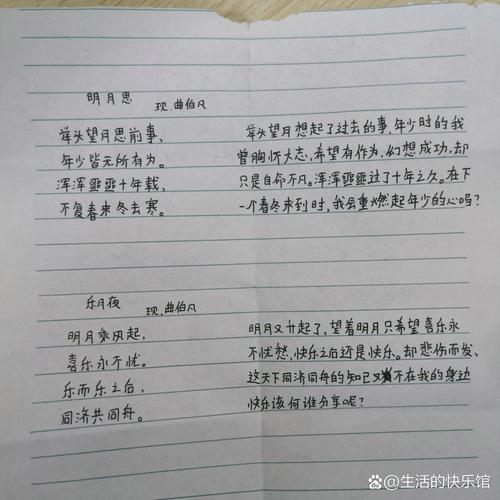 明月思 现.曲伯凡
举头望月思前事、
年少皆无所有为。
浑浑噩噩十年载、
不复春来冬去寒。
举头望月想起了过去的事,年少时的我
曾胸怀大志,希望有作为,幻想成功,却
只是自命不凡。浑浑噩噩过了十年之久。在下
一个春冬来到时,我会重燃起年少的心吗?
乐月夜 现.曲伯凡
明月乘风起,
喜乐永不忧。
乐而乐之后、
同济共同舟。
明月又升起了,望着明月只希望喜乐永
不忧愁,快乐之后还是快乐。却悲伤而发、
这天下同济同舟的知己又不在我的身边
快乐该何谁分享呢?
生活的快乐馆